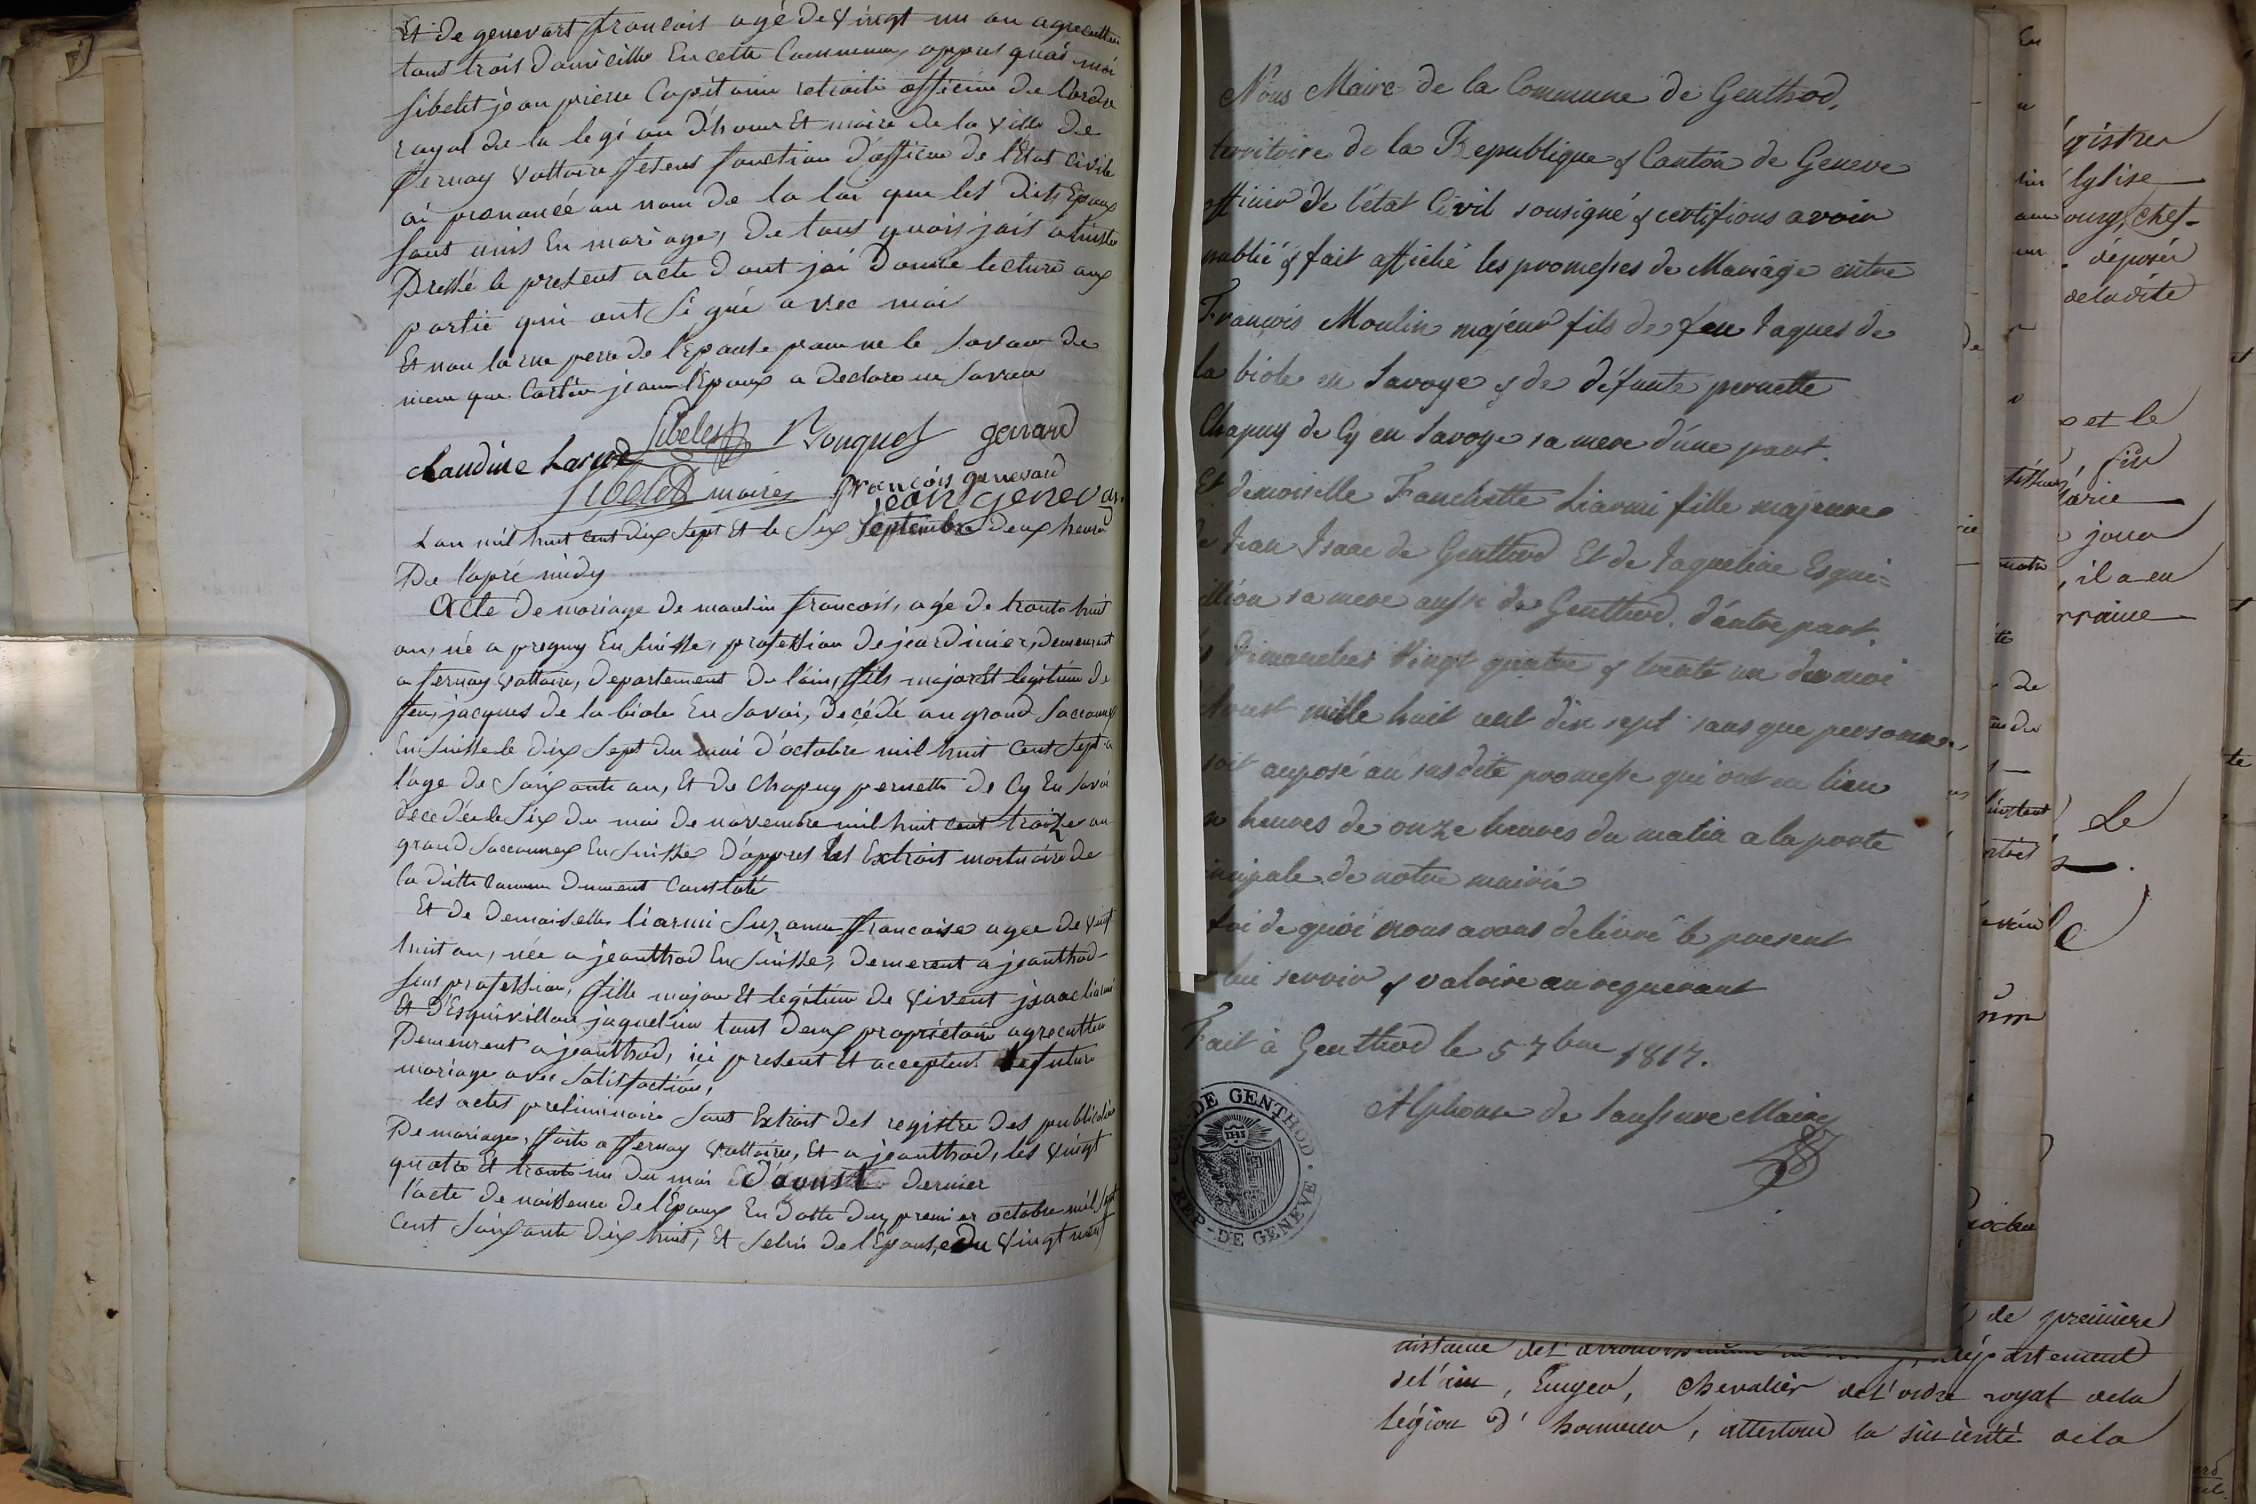 Et de genevart francois agé de vingt un an agreculteur
tous trois domicille En cette Commune, appres quoi moi
Sibelet jean pierre Capitaine retraité officier de L'ordre
royal de la legi on d'honeur Et maire de la ville de
fernay Voltaire fesens fonction d'officier de l'Etat Civile
ai prononcé au nom de la loi que les dits Epoux
sont unis En mariage, De tous quois jais
Dressé le present acte dont jai Donné lecture aux
partie qui ont Si gné avec moi
Et non la rue pere de l'Epouse pour ne le savoir de
meme que Cartier jeanne l'Epoux a declaré ne savoir
Claudine Larue Sibelet Bouquet genvard
Sibelet maire francois genevard
jean genevar
Lan mil huit cent dix Sept Et le Six Septembre deux heure
De l'apré midy
Acte De mariage de moulin francois, agé de trante huit
an, né a pregny En Suisse, profession de jeardinier, demeurant
a fernay Voltaire, departement de l'ain, fils major Et legitime de
feu, jacques de la biole En Savoi, decédé au grand Sacconnex
En Suisse le dix Sept du moi d'octobre mil huit Cent Sept a
l'age de Soixante an, Et de Chapuy pernette de Cy En Savoi
decedée le Six du moi de novembre mil huit cent traize au
grand Sacconnex En Suisse D'appres les Extrait mortuaire de
la ditte Commune Dument Constaté
Et de Demaiselle liarmi Suzanne francoise agee de vingt
huit an, née a jeanthod En Suisse, demerent a jeanthod
Sens profession, fille majeur Et legitime de vivent jsaac liarmi
Et D'Esquivillon jaqueline tous deux propriétaire agreculteur
Demeurent a jeanthod, ici present Et acceptent le future
mariage avec Satisfaction,
les actes preliminaire Sont Extrait des registre des publication
De mariage, faite a fernay Voltaire, Et a jeanthod, les vingt
quatre Et trante un du moi D'aoust dernier
l'acte de naissence de l'Epoux En datte du premier octobre mil Sept
Cent Soixante Dix huit, Et Selui de l'Epouse, du vingt neuf
Nous Maire de la Commune de Genthod,
territoire de la Republique & Canton de Geneve
officier de l'état Civil sousigné & certifions avoir
publié & fait affiché les promesses de Mariage entre
François Moulin majeur fils de feu Jaques de
la biole en Savoye & de défunte pernette
Chapuy de Cy en Savoye sa mere d'une part.
Et demoiselle Fanchette Liarmi fille majeure
Jean Isaac de Genthod Et de Jaqueline Esqui=
illion sa mere aussi de Genthod. d'autre part.
Dimanches Vingt quatre & trente un du moi
Aoust mille huit cent dix sept sans que personne
soit auposé au susdite promesse qui ont eu lieu
heures de onze heures du matin a la porte
incipale de notre mairie
foi de quoi nous avons delivré le present
lui servir & valoire au requerant
Fait à Genthod le 5 7bre 1817.
Alphonse de Saussure Maire
DE GENTHOD
REP. DE GENEVE
gistres
Eglise
ourg, chef-
déposés
de la dite
et le
fils
Marie
jour
, il a eu
rraine
de
Le
de première
instance de l'arrondissement département
de l'ain, Singer, chevalier de l'ordre royal de la
légion d'honneur, attestons la sincérité de la